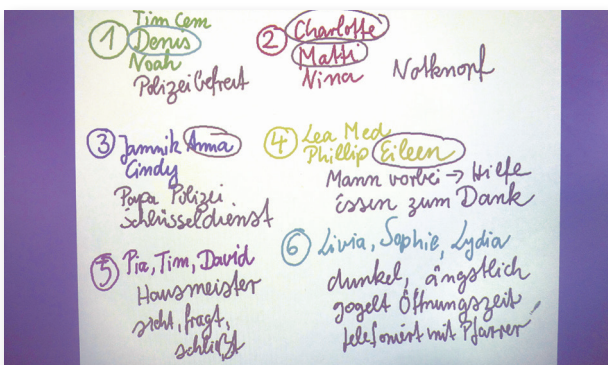 ① Tim Cem
Denis
Noah
Polizei befreit
② Charlotte
Matti
Nina
Notknopf
③ Jannik Anna
Cindy
Papa Polizei
Schlüsseldienst
④ Lea Med
Phillip Eileen
Mann vorbei → Hilfe
Essen zum Dank
⑤ Pia, Tim, David
Hausmeister
sieht, fragt,
schließt
⑥ Livia, Sophie, Lydia
dunkel, ängstlich
gogelt Öffnungszeit
telefoniert mit Pfarrer